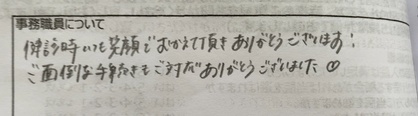 事務職員について
健診時いつも笑顔でおむかえて頂きありがとうございます!
ご面倒な手続きもご対応ありがとうございました♡